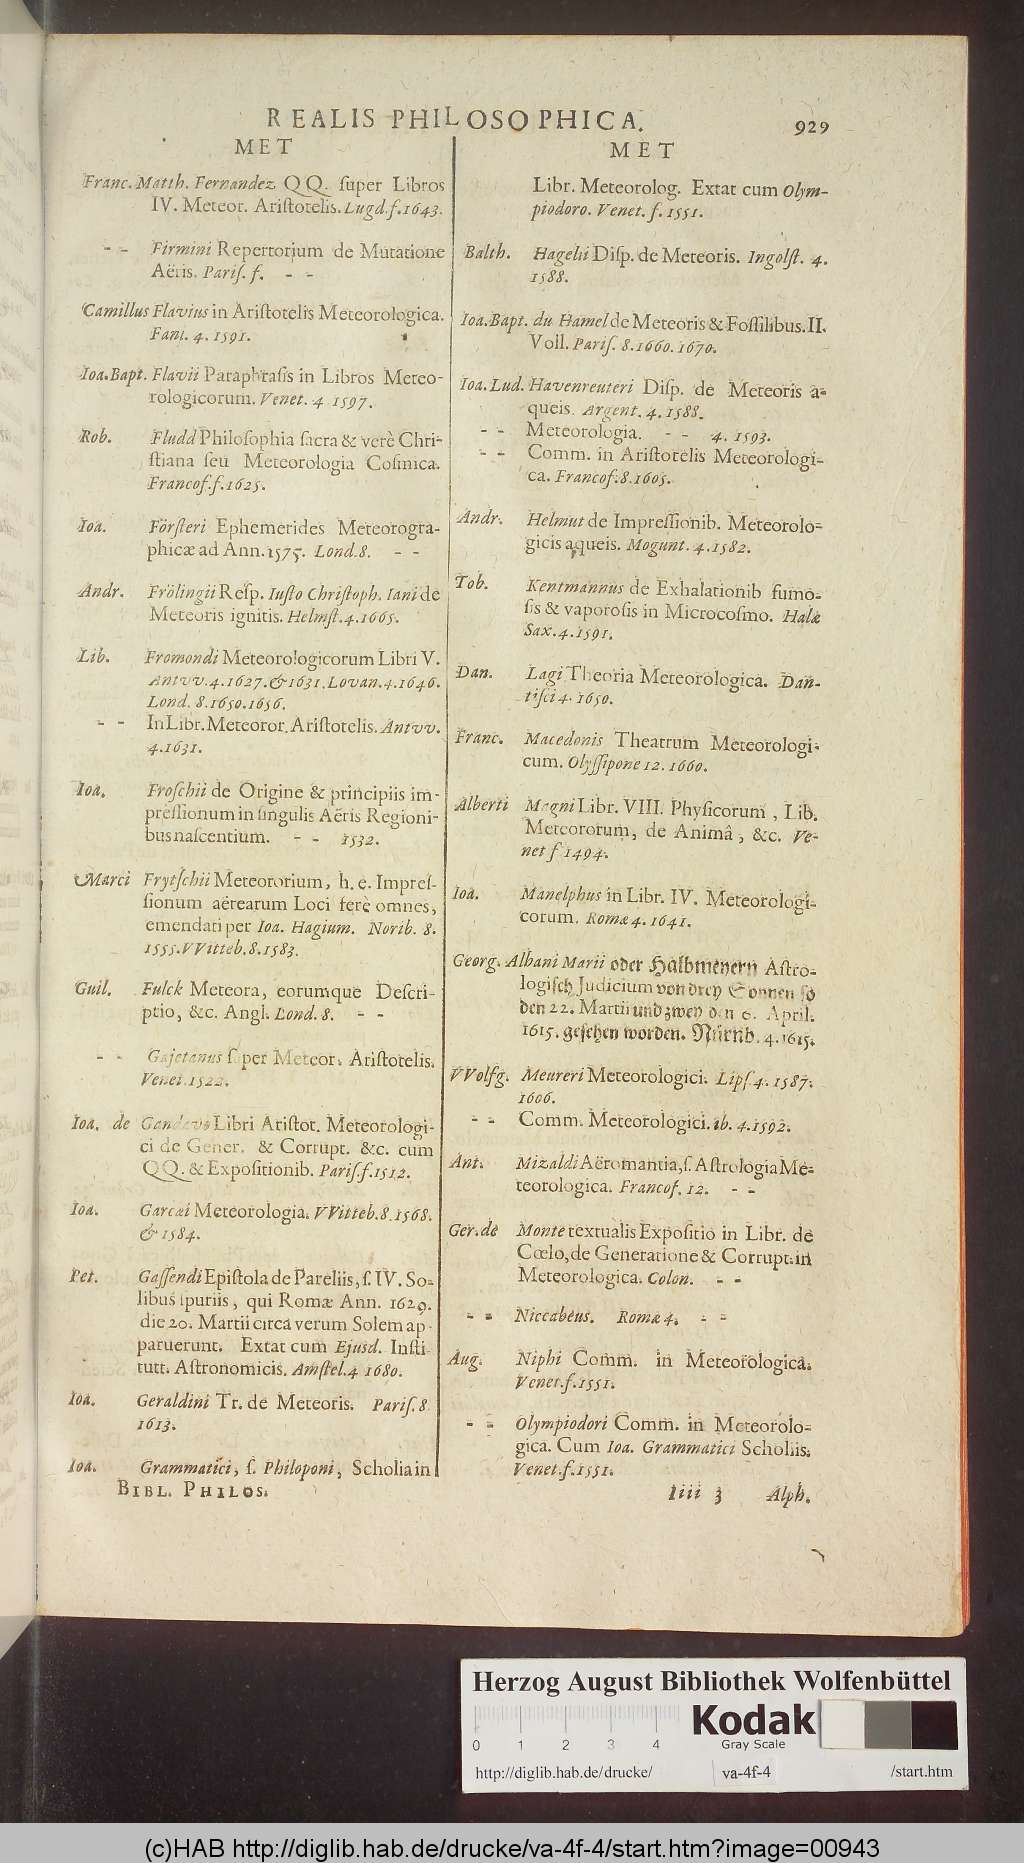 REALIS PHILOSOPHICA. 929
MET
Franc. Matth. Fernandez QQ. ſuper Libros
IV. Meteor. Ariſtotelis. Lugd. f. 1643.
- - Firmini Repertorium de Mutatione
Aëris. Pariſ. f. - -
Camillus Flavius in Ariſtotelis Meteorologica.
Fani. 4. 1591.
Ioa. Bapt. Flavii Paraphraſis in Libros Meteo-
rologicorum. Venet. 4 1597.
Rob. Fludd Philoſophia ſacra & verè Chri-
ſtiana ſeu Meteorologia Coſmica.
Francof. f. 1625.
Ioa. Förſteri Ephemerides Meteorogra-
phicæ ad Ann. 1575. Lond. 8. - -
Andr. Frölingii Reſp. Iuſto Chriſtoph. Iani de
Meteoris ignitis. Helmſt. 4. 1665.
Lib. Fromondi Meteorologicorum Libri V.
Antvv. 4. 1627. & 1631. Lovan. 4. 1646.
Lond. 8. 1650. 1656.
- - In Libr. Meteoror. Ariſtotelis. Antvv.
4. 1631.
Ioa. Froſchii de Origine & principiis im-
preſſionum in ſingulis Aëris Regioni-
bus naſcentium. - - 1532.
Marci Frytſchii Meteororium, h. e. Impreſ-
ſionum aërearum Loci ferè omnes,
emendati per Ioa. Hagium. Norib. 8.
1555. VVitteb. 8. 1583.
Guil. Fulck Meteora, eorumque Deſcri-
ptio, &c. Angl. Lond. 8. - -
- - Gajetanus ſuper Meteor. Ariſtotelis.
Venet. 1522.
Ioa. de Gandavo Libri Ariſtot. Meteorologi-
ci de Gener. & Corrupt. &c. cum
QQ. & Expoſitionib. Pariſ. f. 1512.
Ioa. Garcæi Meteorologia. VVitteb. 8. 1568.
& 1584.
Pet. Gaſſendi Epiſtola de Pareliis, ſ. IV. So-
libus ſpuriis, qui Romæ Ann. 1629.
die 20. Martii circa verum Solem ap-
paruerunt. Extat cum Ejusd. Inſti-
tutt. Aſtronomicis. Amſtel. 4 1680.
Ioa. Geraldini Tr. de Meteoris. Pariſ. 8
1613.
Ioa. Grammatici, ſ. Philoponi, Scholia in
BIBL. PHILOS.
MET
Libr. Meteorolog. Extat cum Olym-
piodoro. Venet. f. 1551.
Balth. Hagelii Diſp. de Meteoris. Ingolſt. 4.
1588.
Ioa. Bapt. du Hamel de Meteoris & Foſſilibus. II.
Voll. Pariſ. 8. 1660. 1670.
Ioa. Lud. Havenreuteri Diſp. de Meteoris a-
queis. Argent. 4. 1588.
- - Meteorologia. - - 4. 1593.
- - Comm. in Ariſtotelis Meteorologi-
ca. Francof. 8. 1605.
Andr. Helmut de Impreſſionib. Meteorolo-
gicis aqueis. Mogunt. 4. 1582.
Tob. Kentmannus de Exhalationib fumo-
ſis & vaporoſis in Microcoſmo. Halæ
Sax. 4. 1591.
Dan. Lagi Theoria Meteorologica. Dan-
tiſci 4. 1650.
Franc. Macedonis Theatrum Meteorologi-
cum. Olyſſipone 12. 1660.
Alberti Magni Libr. VIII. Phyſicorum, Lib.
Meteororum, de Animâ, &c. Ve-
net f 1494.
Ioa. Manelphus in Libr. IV. Meteorologi-
corum. Romæ 4. 1641.
Georg. Albani Marii oder Halbmeyern Aſtro-
logiſch Judicium von drey Sonnen ſo
den 22. Martii und zwey den 6. April.
1615. geſehen worden. Nürnb. 4. 1615.
VVolfg. Meureri Meteorologici. Lipſ 4. 1587.
1606.
- - Comm. Meteorologici. ib. 4. 1592.
Ant. Mizaldi Aëromantia, ſ. Aſtrologia Me-
teorologica. Francof. 12. - -
Ger. de Monte textualis Expoſitio in Libr. de
Cœlo, de Generatione & Corrupt. in
Meteorologica. Colon. - -
- - Niccabeus. Romæ 4. - -
Aug. Niphi Comm. in Meteorologica.
Venet. f. 1551.
- - Olympiodori Comm. in Meteorolo-
gica. Cum Ioa. Grammatici Scholiis.
Venet. f. 1551.
Iiii 3 Alph.
Herzog August Bibliothek Wolfenbüttel
0 1 2 3 4
Kodak
Gray Scale
http://diglib.hab.de/drucke/ va-4f-4 /start.htm
(c)HAB http://diglib.hab.de/drucke/va-4f-4/start.htm?image=00943